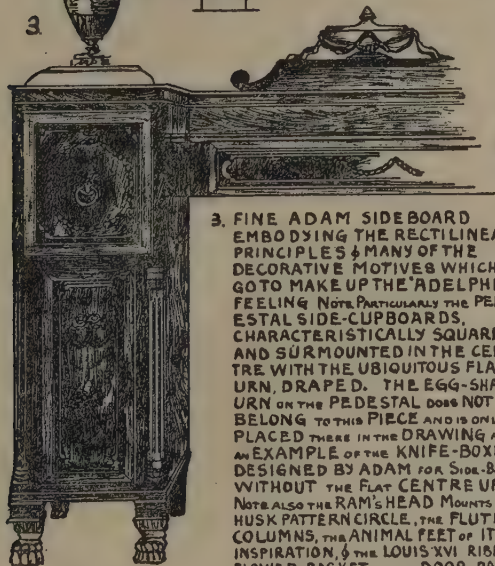 3.
3. FINE ADAM SIDEBOARD
EMBODYING THE RECTILINEA
PRINCIPLES & MANY OF THE
DECORATIVE MOTIVES WHICH
GO TO MAKE UP THE "ADELPHI
FEELING NOTE PARTICULARLY THE PE
ESTAL SIDE-CUPBOARDS,
CHARACTERISTICALLY SQUARE
AND SURMOUNTED IN THE CEN
TRE WITH THE UBIQUITOUS FLA
URN, DRAPED. THE EGG-SHA
URN ON THE PEDESTAL DOES NOT
BELONG TO THIS PIECE AND IS ONL
PLACED THERE IN THE DRAWING A
AN EXAMPLE OF THE KNIFE-BOXE
DESIGNED BY ADAM FOR SIDE-B
WITHOUT THE FLAT CENTRE UR
NOTE ALSO THE RAM'S HEAD MOUNTS
HUSK PATTERN CIRCLE, THE FLUT
COLUMNS, THE ANIMAL FEET OF IT
INSPIRATION, & THE LOUIS XVI RIB